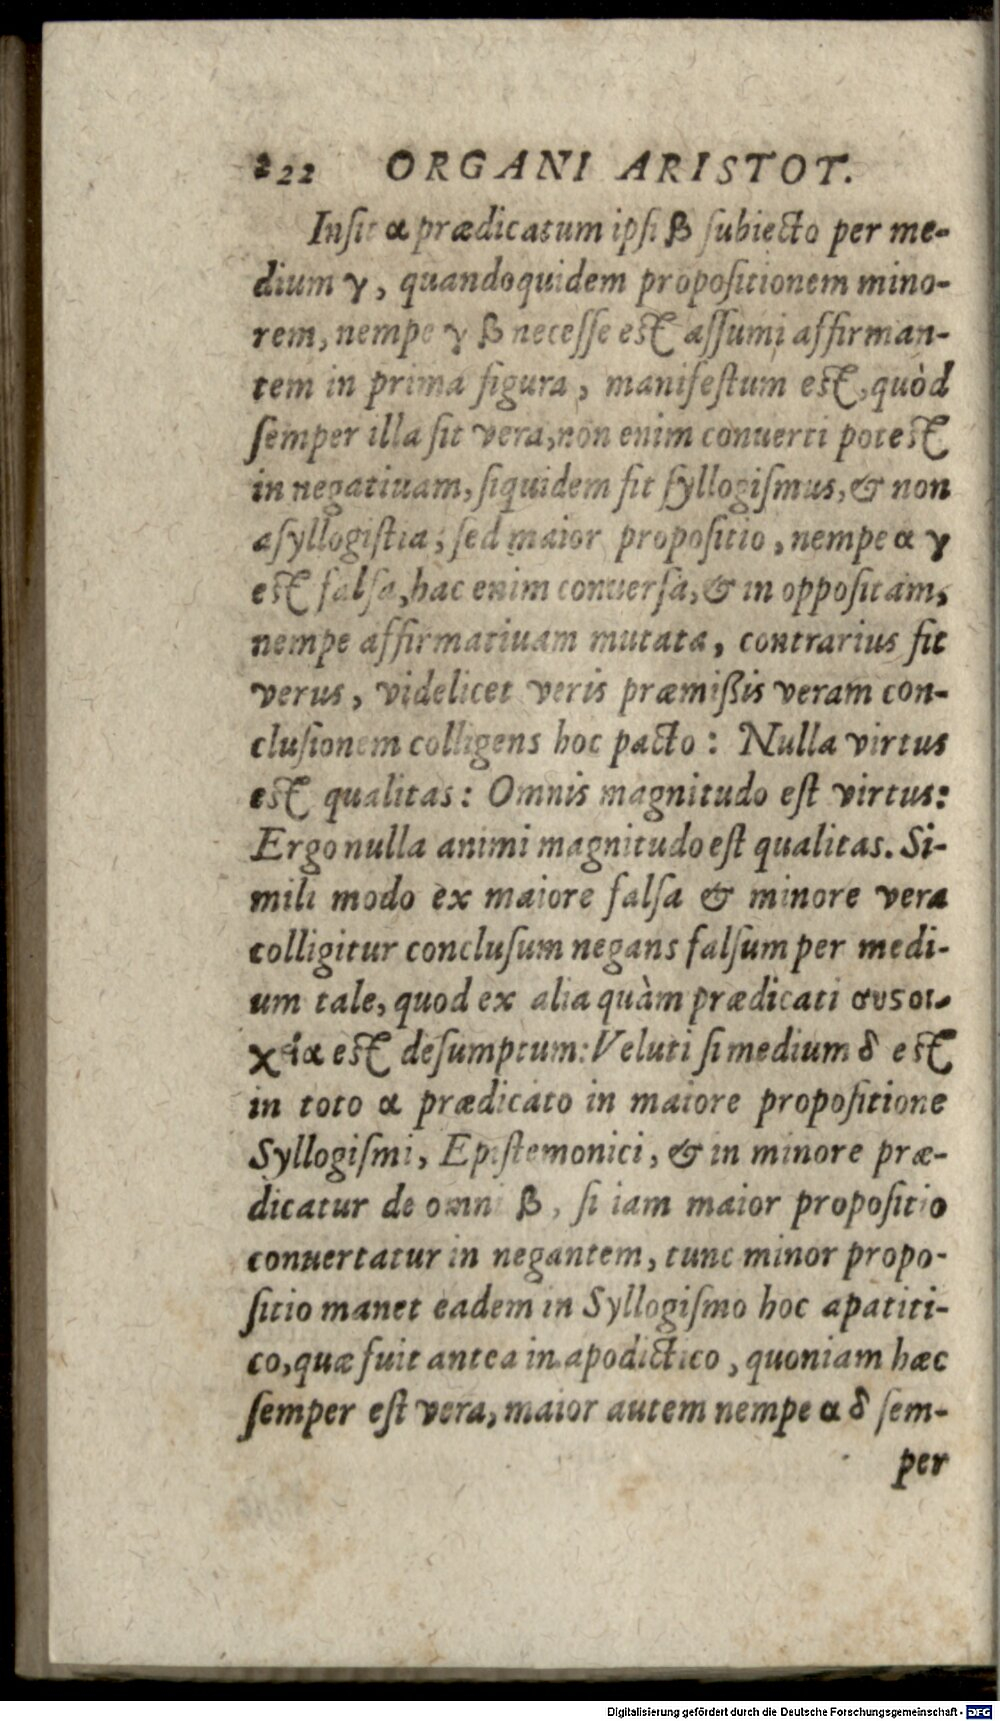 222 ORGANI ARISTOT.
Inſit α prædicatum ipſi β ſubiecto per me-
dium γ, quandoquidem propoſitionem mino-
rem, nempe γ β neceſſe eſt aſſumi affirman-
tem in prima figura, manifeſtum eſt, quòd
ſemper illa ſit vera, non enim conuerti poteſt
in negatiuam, ſiquidem ſit ſyllogiſmus, & non
aſyllogiſtia; ſed maior propoſitio, nempe α γ
eſt falſa, hac enim conuerſa, & in oppoſitam,
nempe affirmatiuam mutata, contrarius fit
verus, videlicet veris præmißis veram con-
cluſionem colligens hoc pacto: Nulla virtus
eſt qualitas: Omnis magnitudo eſt virtus:
Ergo nulla animi magnitudo eſt qualitas. Si-
mili modo ex maiore falſa & minore vera
colligitur concluſum negans falſum per medi-
um tale, quod ex alia quàm prædicati συςοι-
χεία eſt deſumptum: Veluti ſi medium δ eſt
in toto α prædicato in maiore propoſitione
Syllogiſmi, Epiſtemonici, & in minore præ-
dicatur de omni β, ſi iam maior propoſitio
conuertatur in negantem, tunc minor propo-
ſitio manet eadem in Syllogiſmo hoc apatiti-
co, quæ fuit antea in apodictico, quoniam hæc
ſemper eſt vera, maior autem nempe α δ ſem-
per
Digitalisierung gefördert durch die Deutsche Forschungsgemeinschaft - DFG